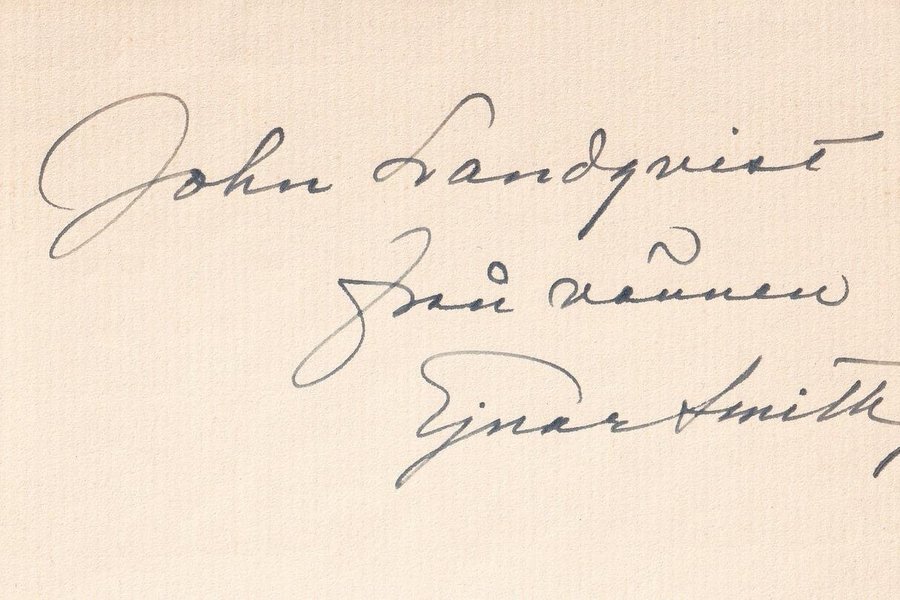 John Landqvist
från vännen
Ejnar Smith